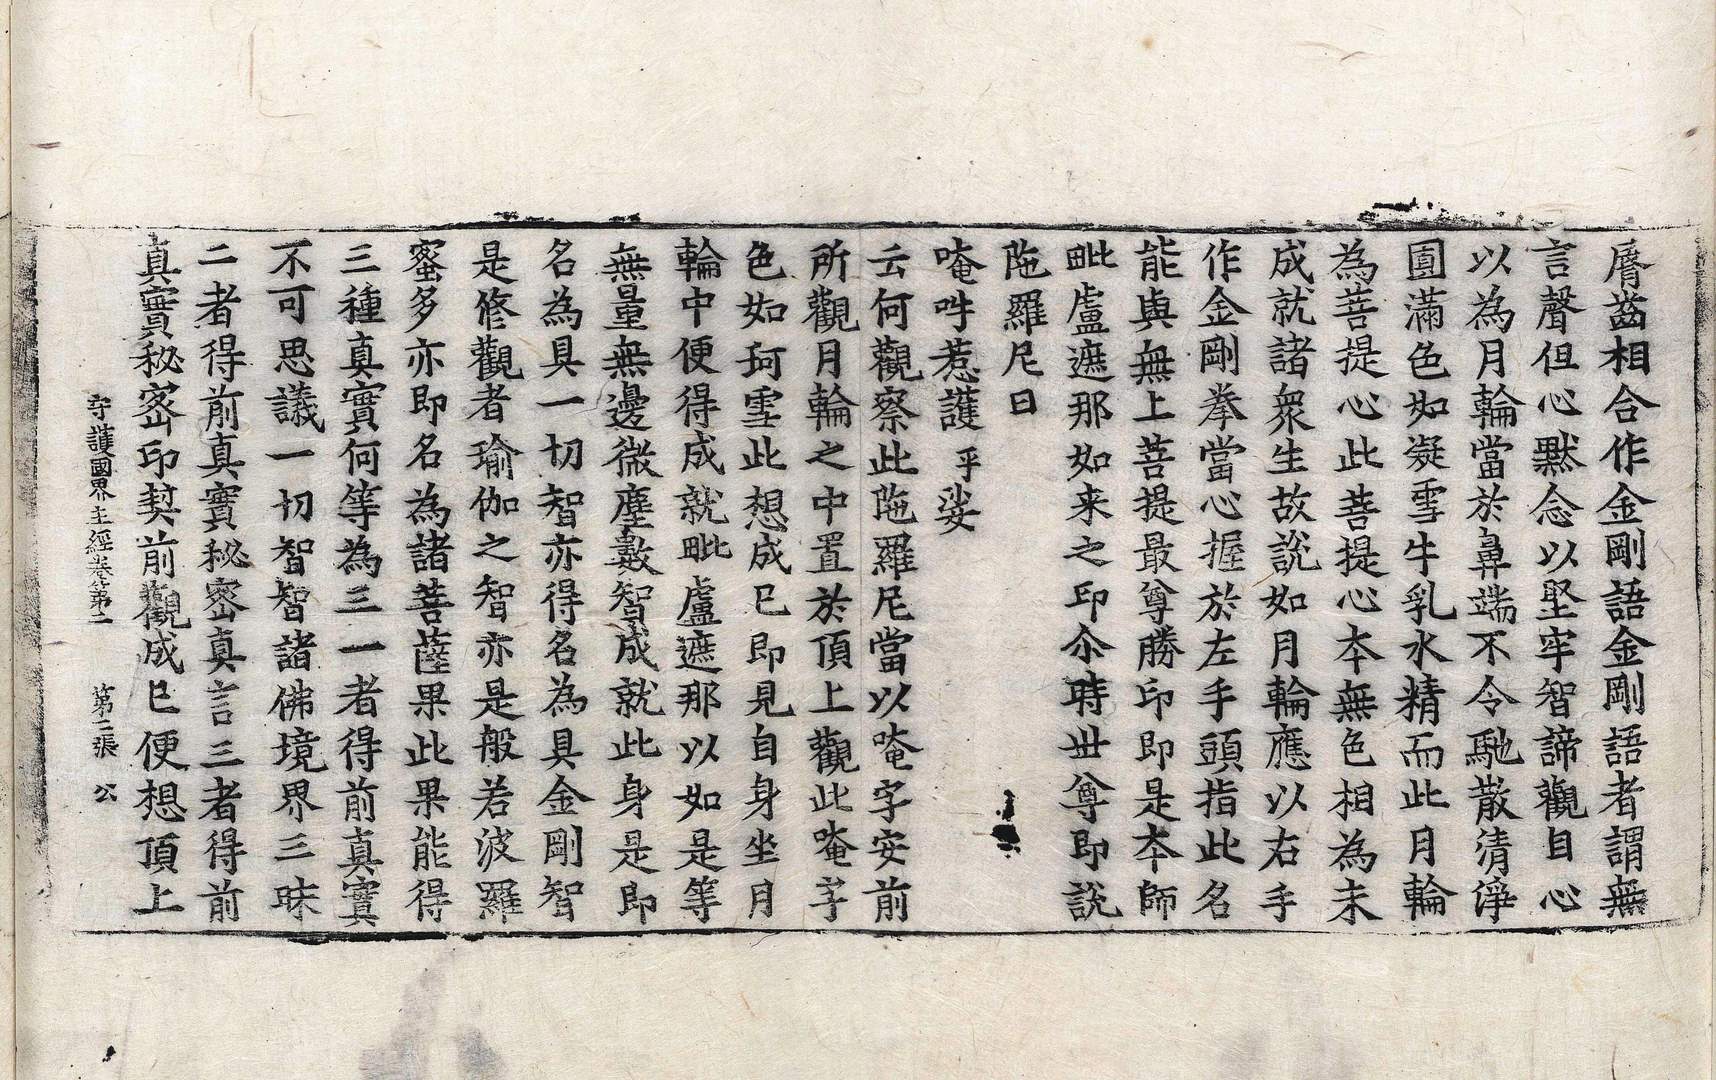 脣齒相合作金剛語金剛語者謂無
言聲但心默念以堅牢智諦觀自心
以為月輪當於鼻端不令馳散清淨
圓滿色如凝雪牛乳水精而此月輪
為菩提心此菩提心本無色相為未
成就諸衆生故說如月輪應以右手
作金剛拳當心握於左手頭指此名
能與無上菩提最尊勝印即是本師
毗盧遮那如来之印尒時世尊即說
陁羅尼曰
唵吽惹護乎娑
云何觀察此陁羅尼當以唵字安前
所觀月輪之中置於頂上觀此唵字
色如珂雪此想成已即見自身坐月
輪中便得成就毗盧遮那以如是等
無量無邊微塵數智成就此身是即
名為具一切智亦得名為具金剛智
是修觀者瑜伽之智亦是般若波羅
蜜多亦即名為諸菩薩果此果能得
三種真實何等為三一者得前真實
不可思議一切智智諸佛境界三昧
二者得前真實秘密真言三者得前
真實秘密印契前觀成已便想頂上
守護國界主經卷第二　第三張　公